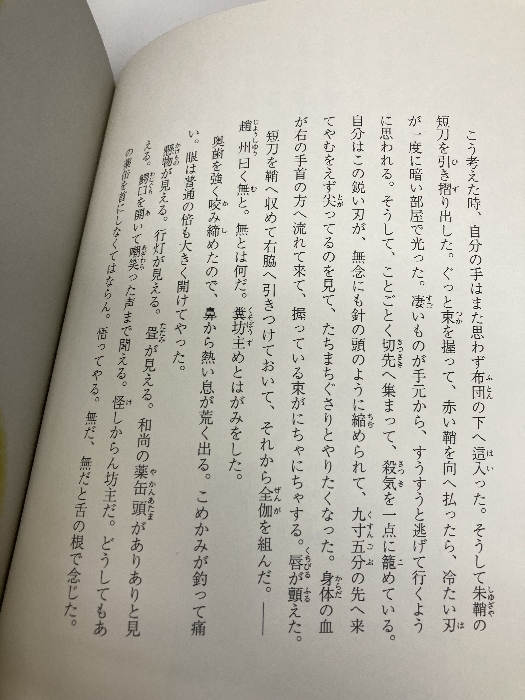 こう考えた時、自分の手はまた思わず布団の下へ這入った。そうして朱鞘の
短刀を引き摺り出した。ぐっと束を握って、赤い鞘を向へ払ったら、冷たい刃
が一度に暗い部屋で光った。凄いものが手元から、すうすうと逃げて行くよう
に思われる。そうして、ことごとく切先へ集まって、殺気を一点に籠めている。
自分はこの鋭い刃が、無念にも針の頭のように縮められて、九寸五分の先へ来
てやむをえず尖ってるのを見て、たちまちぐさりとやりたくなった。身体の血
が右の手首の方へ流れて来て、握っている束がにちゃにちゃする。唇が顫えた。
短刀を鞘へ収めて右脇へ引きつけておいて、それから全伽を組んだ。――
趙州曰く無と。無とは何だ。糞坊主めとはがみをした。
奥歯を強く咬み締めたので、鼻から熱い息が荒く出る。こめかみが釣って痛
い。眼は普通の倍も大きく開けてやった。
懸物が見える。行灯が見える。畳が見える。和尚の薬缶頭がありありと見
える。鰐口を開いて嘲笑った声まで聞える。怪しからん坊主だ。どうしてもあ
の薬缶を首にしなくてはならん。悟ってやる。無だ、無だと舌の根で念じた。